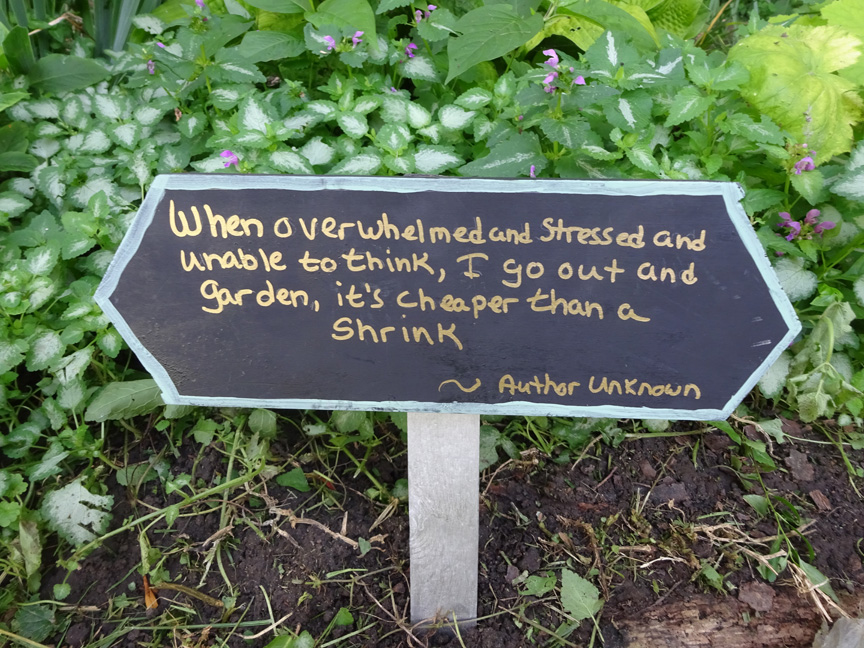 When overwhelmed and stressed and
unable to think, I go out and
garden, it's cheaper than a
Shrink
~ Author Unknown